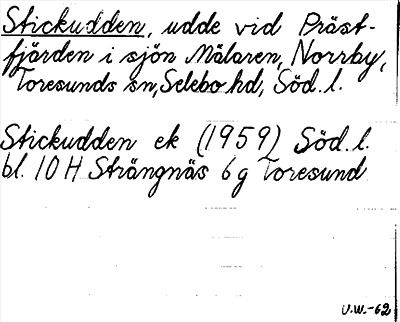 Stickudden, udde vid Präst-
fjärden i sjön Mälaren, Norrby,
Toresunds sn, Selebo hd, Söd. l.
Stickudden ek (1959) Söd. l.
bl. 10 H Strängnäs 6 g Toresund
U.W.-62